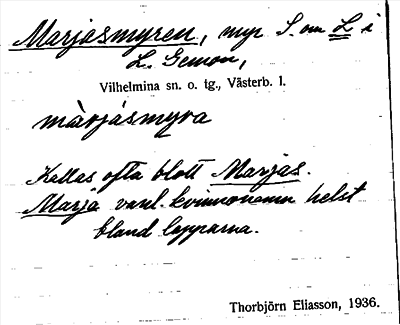 Marjasmyren, myr S. om L i
L. Gemon,
Vilhelmina sn. o. tg., Västerb. l.
màrjásmyra
Kallas ofta blott Marjas.
Marja vanl. kvinnonamn helst
bland lapparna.
Thorbjörn Eliasson, 1936.